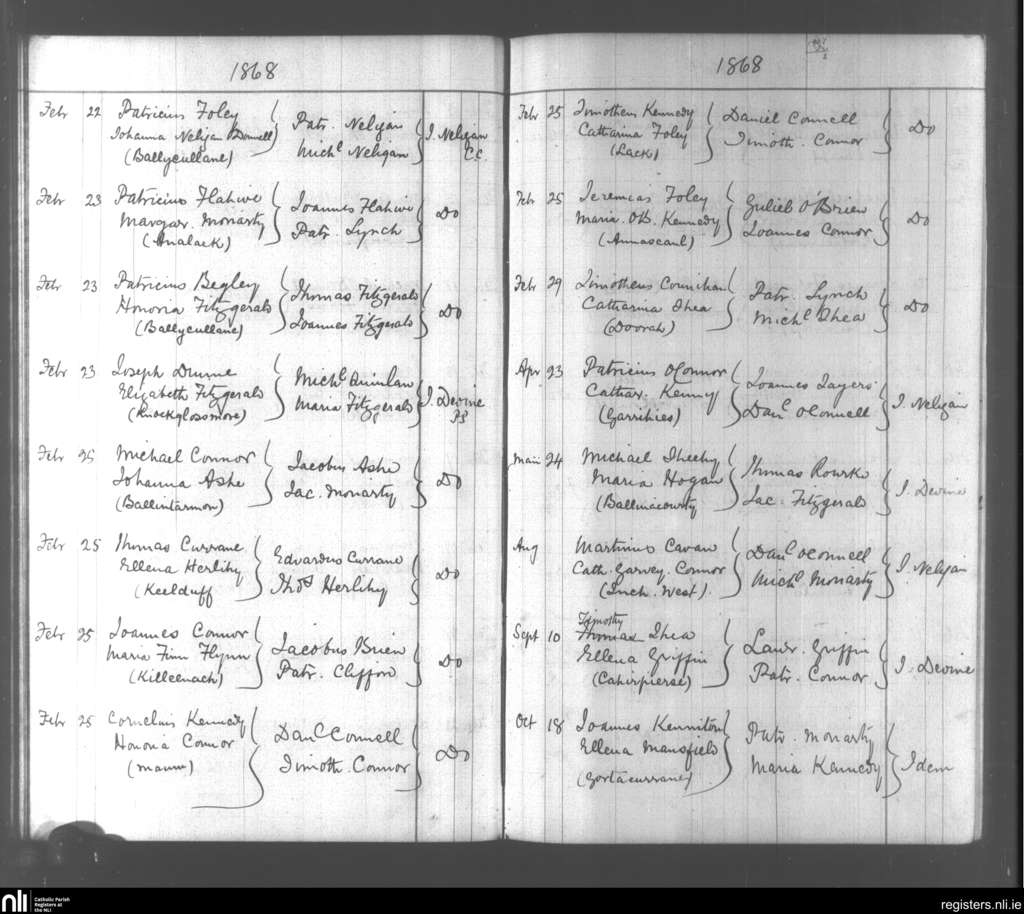 1868
Febr 22 Patricius Foley
Johanna Neligan (Donnell)
(Ballycullane)
Patr. Neligan
Michl Neligan
J. Neligan
C.C.
Febr 23 Patricius Flahive
Margar. Moriarty
(Analack)
Joannes Flahive
Patr. Lynch
Do
Febr 23 Patricius Begley
Honoria Fitzgerald
(Ballycullane)
Thomas Fitzgerald
Joannes Fitzgerald
Do
Febr 23 Joseph
Elizabeth Fitzgerald
(Knockglossmore)
Michl Quinlan
Maria Fitzgerald
J. Devine
PP
Febr 25 Michael Connor
Johanna Ashe
(Ballintarmon)
Jacobus Ashe
Jac. Moriarty
Do
Febr 25 Thomas Currane
Ellena Herlihy
(Keelduff
Edvardus Currane
Thos Herlihy
Do
Febr 25 Joannes Connor
Maria Finn Flynn
(Killeenach)
Jacobus Brien
Patr. Clifford
Do
Febr 25 Cornelius Kennedy
Honoria Connor
Danl Connell
Timoth. Connor
Do
1868
Febr 25 Timotheus Kennedy
Catharina Foley
(Lack)
Daniel Connell
Timoth. Connor
Do
Febr 25 Jeremias Foley
Maria OB. Kennedy
(Annascaul)
Guliel O'Brien
Joannes Connor
Do
Febr 29 Timotheus Counihan
Catharina Shea
(Doorah)
Patr. Lynch
Michl Shea
Do
Apr 23 Patricius OConnor
Cathar. Kenney
(Garrihies)
Joannes Sayers
Danl OConnell
J. Neligan
Maii 24 Michael Sheehy
Maria Hogan
(Ballinacourty
Thomas Rourke
Jac. Fitzgerald
J. Devine
Aug Martinus Cavan
Cath. Garvey. Connor
(Inch. West).
Danl OConnell
Michl Moriarty
J. Neligan
Timothy
Sept 10 Thomas Shea
Ellena Griffin
(Cahirpierse)
Laur. Griffin
Patr. Connor
J. Devine
Oct 18 Joannes Kenniton
Ellena Mansfield
(Gortacurrane)
Patr. Moriarty
Maria Kennedy
Idem
nli
Catholic Parish
Registers at
the NLI
registers.nli.ie